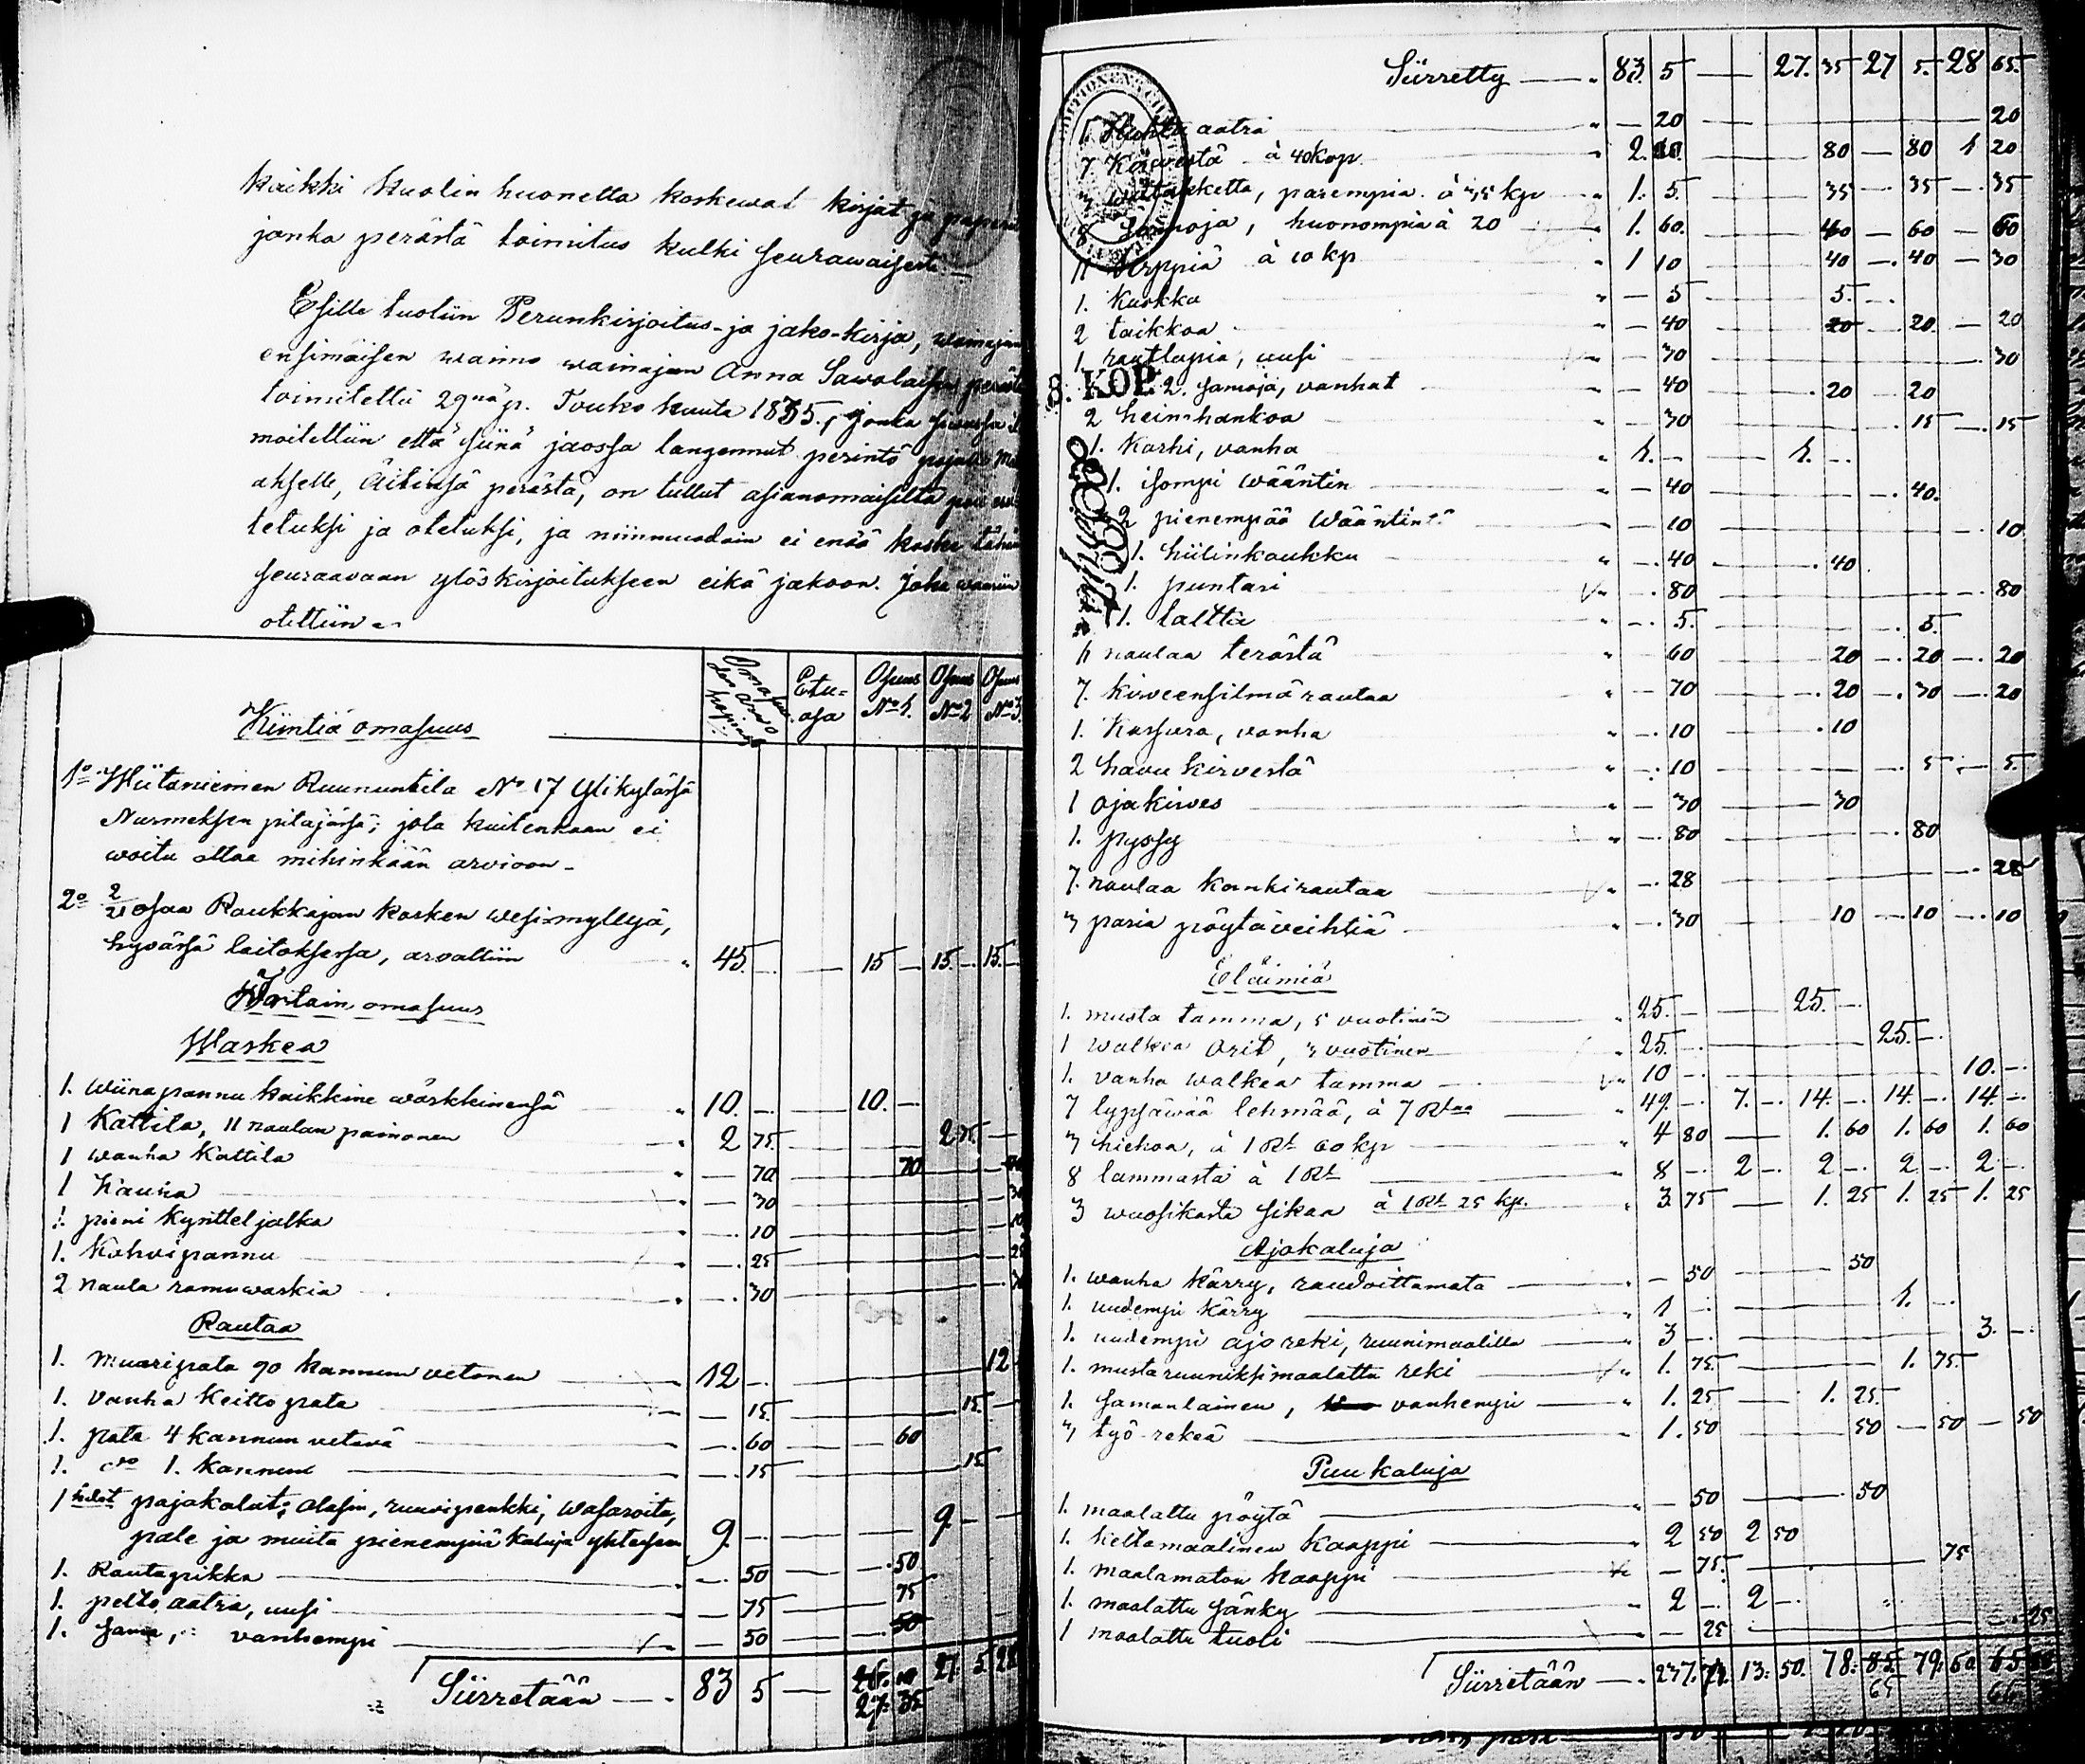 kaikki kuolin huonetta koskewat kirjat ja
jonka perästä toimitus kulki seurawaisesti.—
Esille tuotiin Perunkirjoitus-ja jako-kirja,
ensimäisen waimo wainajan Anna Sawolaisen perästä
toimitettu 29nä p. Toukokuuta 1855, jonka
moitettiin että siinä jaossa langennut perintö
aksella, Äitinsä perästä, on tullut asianomaisilta
tetuksi ja otetuksi, ja niinmuodoin ei enää koske tähän
seuraavaan ylöskirjoitukseen eikä jakoon. Joka
otettiin
Kiintiä omasuus
Etu-osa
Osuus No 1.
Osuus No 2
Osuus No 3
1o Wiitaniemen Ruununtila No 17 Ylikylässä
Nurmeksen pitäjässä; jota kuitenkaan ei
woitu ottaa mihinkään arvioon -
2o 2/21 osaa Raukkajan kosken wesimyllyjä,
hyvässä laitoksessa, arvattiin " 45. — 15 — 15. — 15. —
Irtain omasuus
Waskea
1. Wiinapannu kaikkine wärkkinensä " 10. — 10. —
1 Kattila, 11 naulan painonen " 2 75. 2 75.
1 wanha Kattila " — 70 70
1 Kauha " — 30 30
1. pieni kynttel jalka " — 10 10
1. Kahvipannu " — 25 25
2 naula romuwaskia " — 30 30
Rautaa
1. Muuripata 90 kannun vetonen " 12 — 12
1. Vanha Keitto pata " — 15. 15.
1. pata 4 kannun vetävä " — 60 60
1. do 1. kannun " — 15 15
1 pajakalut; alasin, ruuvipenkki, wasaroita,
palje ja muita pienempiä kaluja yhteisesti 9. — 9. —
1. Rautapikka " — 50 50
1. pelto aatra, uusi " — 75 75
1. sama, vanhempi " — 50 50
Siirretään — " 83 5 — 27. 35 27. 5 28
Siirretty — " 83. 5 — 27. 35 27 5. 28 65.
1 aatra " — 20 20
7 Kirvestä à 40 kop " 2. 80. 80 — 80 1 20
3 wiitakketta, parempia à 35 kp " 1. 5. 35 — 35 — 35
8 samoja, huonompia à 20 " 1. 60. 40 — 60 — 60
11 Sirppiä à 10 kp " 1 10 40 — 40 — 30
1. Kuokka " — 5 5.
2 taikkoa " — 40 20 — 20 — 20
1. rautlapia, uusi " — 30 30
2. samoja, vanhat " — 40 20 — 20
8. KOP.
2 heinhankoa " — 30 15 — 15
1. Karhi, vanha " 1. — 1. —
1. isompi wääntin " — 40 40.
2 pienempää Wääntintä " — 10 10
1. hiilinkoukku " — 40 40
1. puntari " — 80 80
1. taltta " — 5. 5.
6 naulaa terästä " — 60 20 — 20 — 20
7. kirveensilmä rautaa " — 70 20 — 30 — 20
1. Kassara, vanha " — 10 10
2 havu kirvestä " — 10 5 — 5.
1 ojakirves " — 30 30
1. pyssy " — 80 80
7. naulaa kankirautaa " — 28 28
3 paria pöytäveihtiä " — 30 10 — 10 — 10
Eläimiä
1. musta tamma, 5 vuotinen " 25. — 25. —
1 walkea Orit, 3 vuotinen " 25. — 25. —
1. vanha walkea tamma " 10 — 10. —
7 lypsäwää lehmää, à 7 Rt " 49. — 7. — 14. — 14. — 14 —
3 hiehoa, à 1 Rt 60 kp " 4 80 — 1. 60 1. 60 1. 60
8 lammasta à 1 Rt " 8 — 2 — 2 — 2 — 2 —
3 wuosikasta sikaa à 1 Rt 25 kp. " 3 75 — 1. 25 1. 25 1. 25
Ajokaluja
1. wanha kärry, raudoittamata " — 50 50
1. uudempi kärry " 1 — 1. —
1. uudempi ajo reki, ruunimaalilla " 3 — 3. —
1. musta ruuniksi maalattu reki " 1. 75. 1. 75.
1. samanlainen, vanhempi " 1. 25 1. 25.
3 työ rekeä " 1. 50 50 — 50 — 50
Puu kaluja
1. maalattu pöytä " — 50 50
1. keltamaalinen kaappi " 2 50 2 50
1. maalamaton kaappi " — 75. 75
1. maalattu sänky " 2 — 2 —
1 maalattu tuoli " — 25 25
Siirretään — " 237. 13. 50. 78. 65 79. 60 65